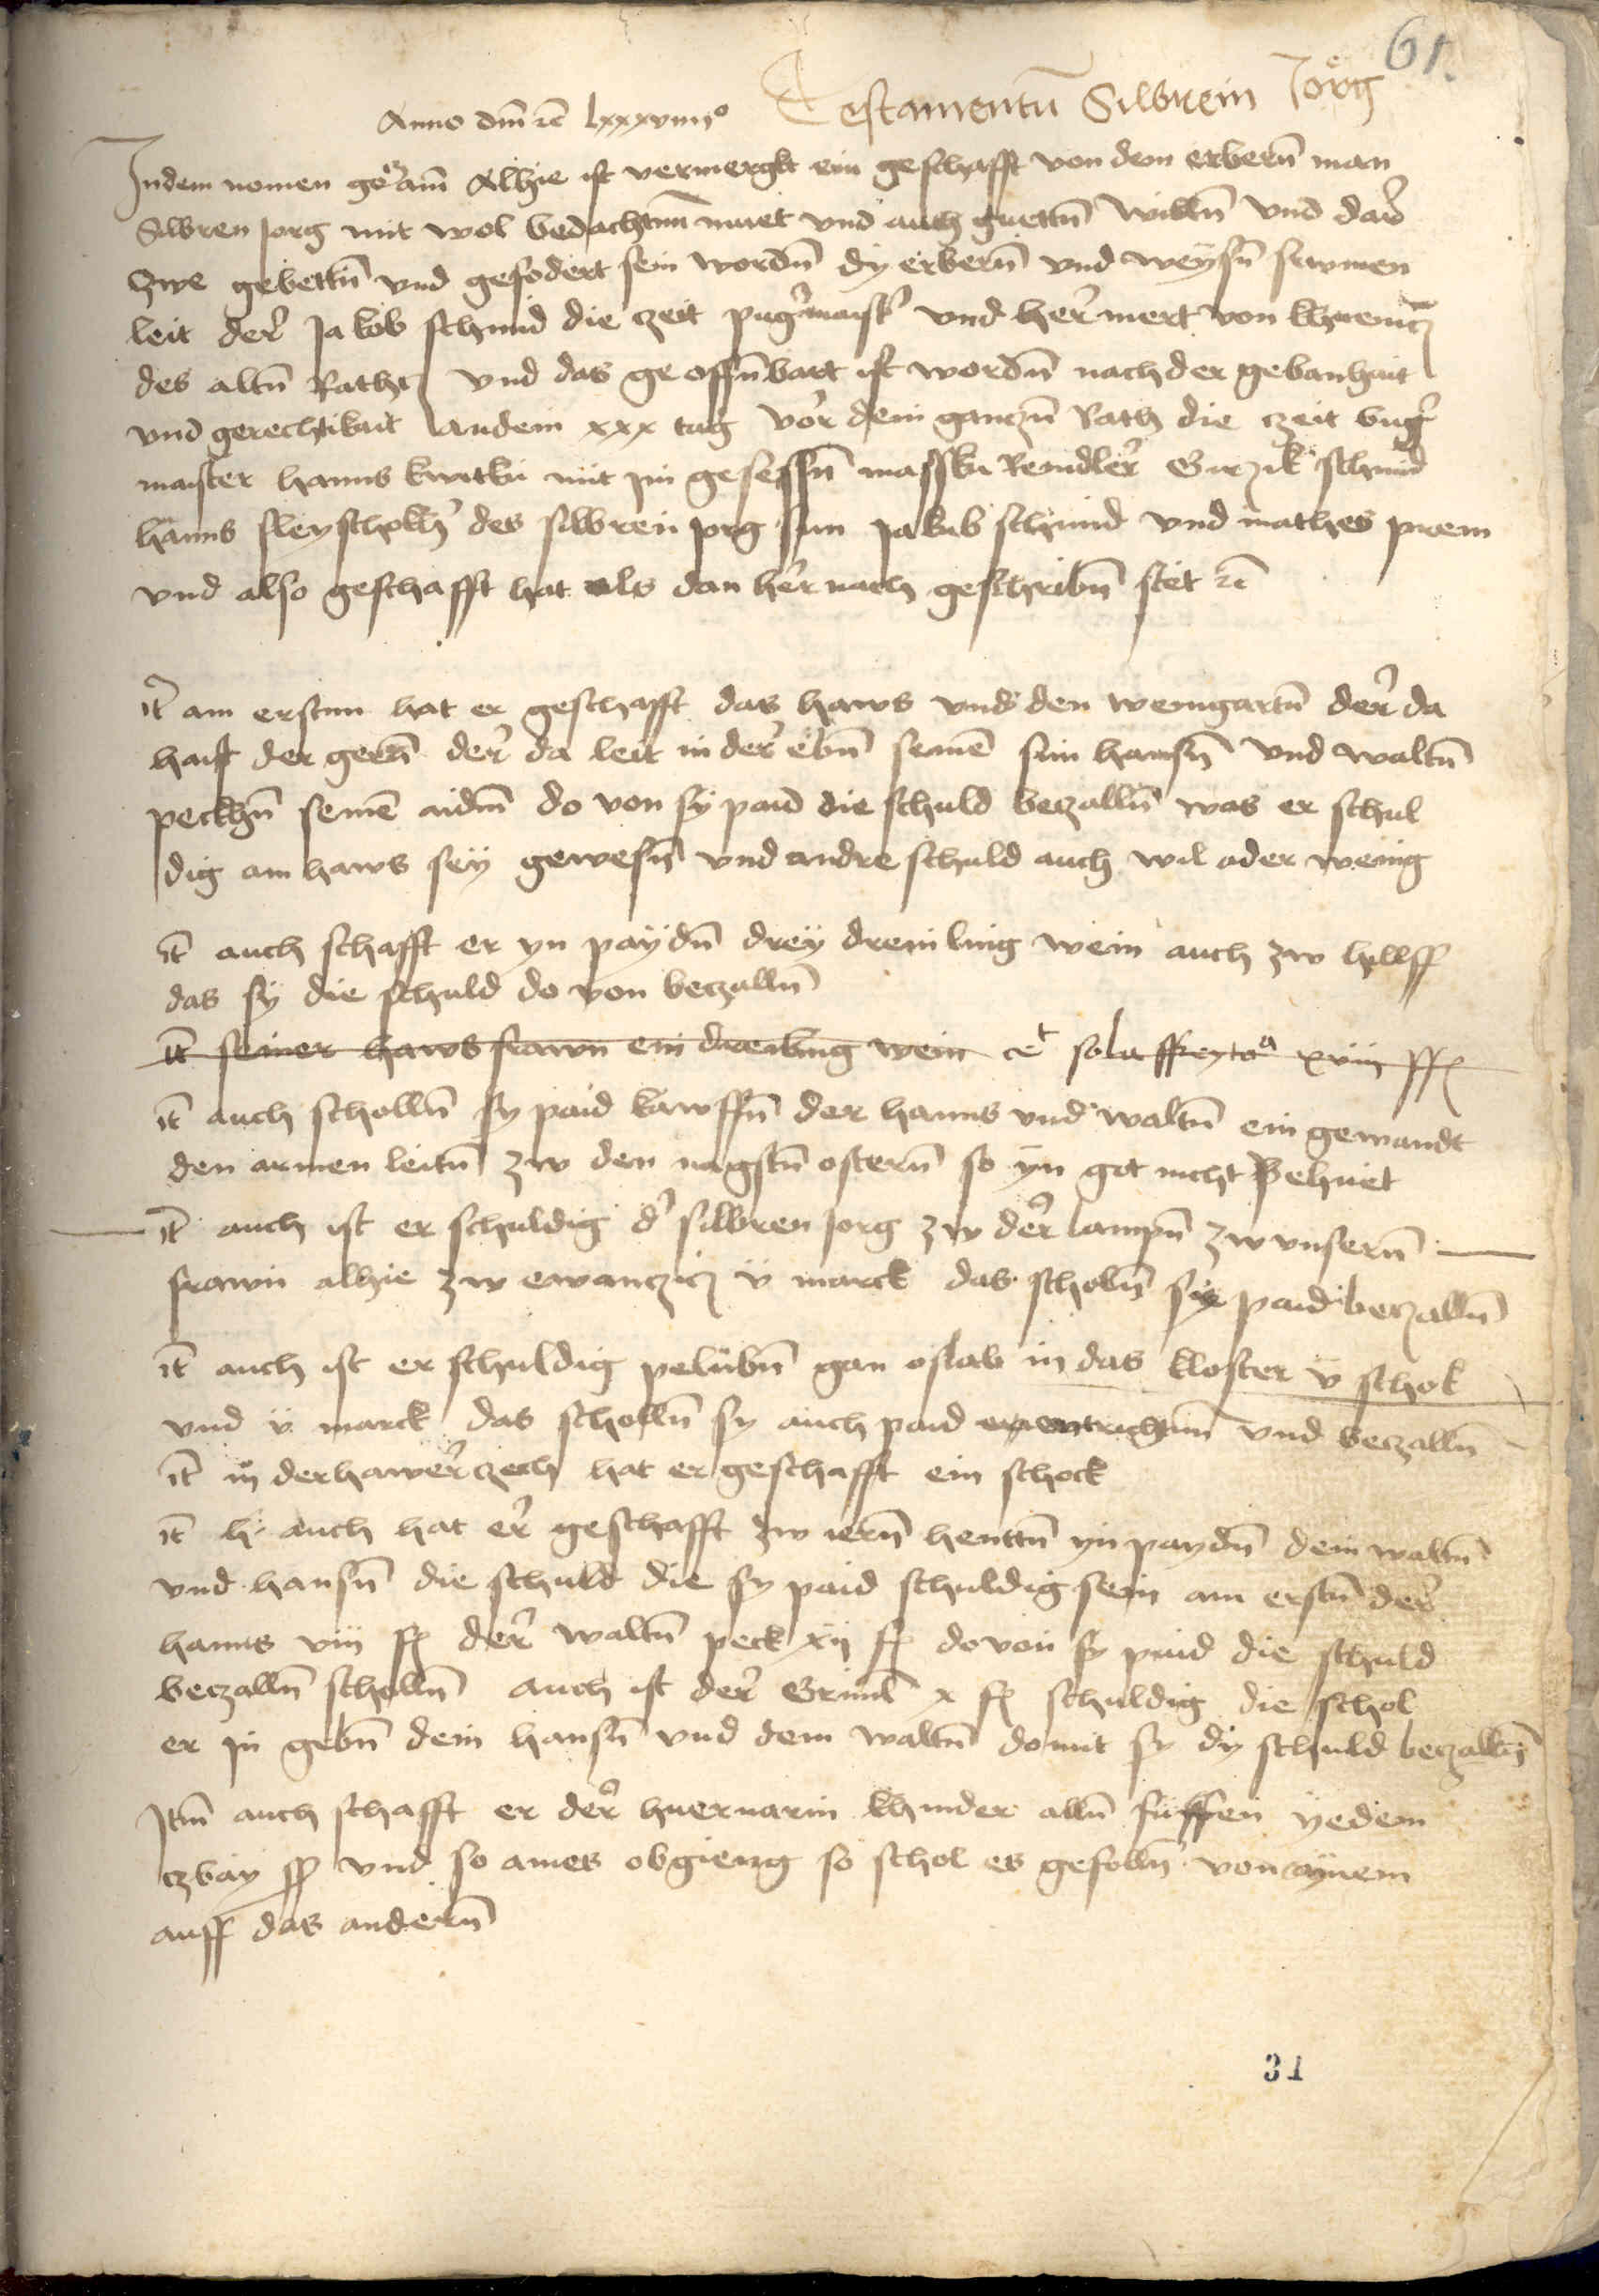 61.
Testamentu͞ Silbrein Jorg
Anno dm̄ ꝛc̄ lxxxviiijº
Indem nomen gotz am̄ Alhie ist vermergkt ein geschafft von dem erbern̄ man
Silbren Jorg mit wol bedachtm̄ muet vnd auch guettn̄ willn̄ vnd dar
Zwe gebettn̄ vnd gefodert sein wordn̄ dy erbern̄ vnd weysn̄ frumen
leit der Jakob schmid die czeit purg̉maist̉ vnd her mert von
des altn̄ Rathcz vnd das ge offn̄bart ist wordn̄ nach der gebanhait
vnd gerechtikait An dem xxx tag vor dem ganczn̄ Rath die czeit bug̉
maister hanns kwitku mit im gesessn̄ massku Remdler Girzik schmid
hanns fleyscholcz̉ des silbren Jorg sun Jakub schmid vnd mathes prem
vnd also geschafft hat als dan her nach geschribn̄ stet ꝛc̄
it̄ am erstnn hat er geschafft das haws vnd den weingartn̄ der da
haist der gern̄ der da leit in der ebn̄ seine͞ sun hansn̄ vnd waltn̄
peckhn̄ seine͞ aidm̄ do von sy paid die schuld beczalln̄ was er schul
dig am haws sey gewesn̄ vnd andre schuld auch wil ader wenig
it̄ auch schafft er yn paydn̄ drey dreiling wein auch zw hillff
das sy die schuld do von beczalln̄
it̄ seiner hawsfrawn ein dreiling wein
it̄ auch scholln̄ sy paid kawffn̄ der hanns vnd waltn̄ ein gewandt
den armen leitn̄ zw den nagstn̄ ostern̄ so yn got nicht Behuet
it̄ auch ist er schuldig d̉ silbren Jorg zw der lampn̄ zw vnsern̄
frawn alhie zw ewanczicz v marck das scholn̄ sy paid beczalln̄
it̄ auch ist er schuldig pelubn̄ gan oslab in das kloster v schok
vnd v marck das scholln̄ sy auch paid entrichtnn̄ vnd beczalln̄
it̄ in der hawer czech hat er geschafft ein schock
it̄ h auch hat er geschafft zw iern̄ henttn̄ yn paydn̄ dem waltn̄
vnd hansn̄ die schuld die sy paid schuldig sein am erstn̄ der
hanns viij ß der waltn̄ peck xij ß do von sy paid die schuld
beczalln̄ scholln̄ auch ist der Griml x ß schuldig die schol
er in gebn̄ dem hansn̄ vnd dem waltn̄ domit sy dy schuld beczalln̄
Itm̄ auch schafft er der huernarin khinder alln̄ fuffen yedem
czway ß vnd so ames obgieng so schol es gefolln̄ von aynem
auff das andern̄
31